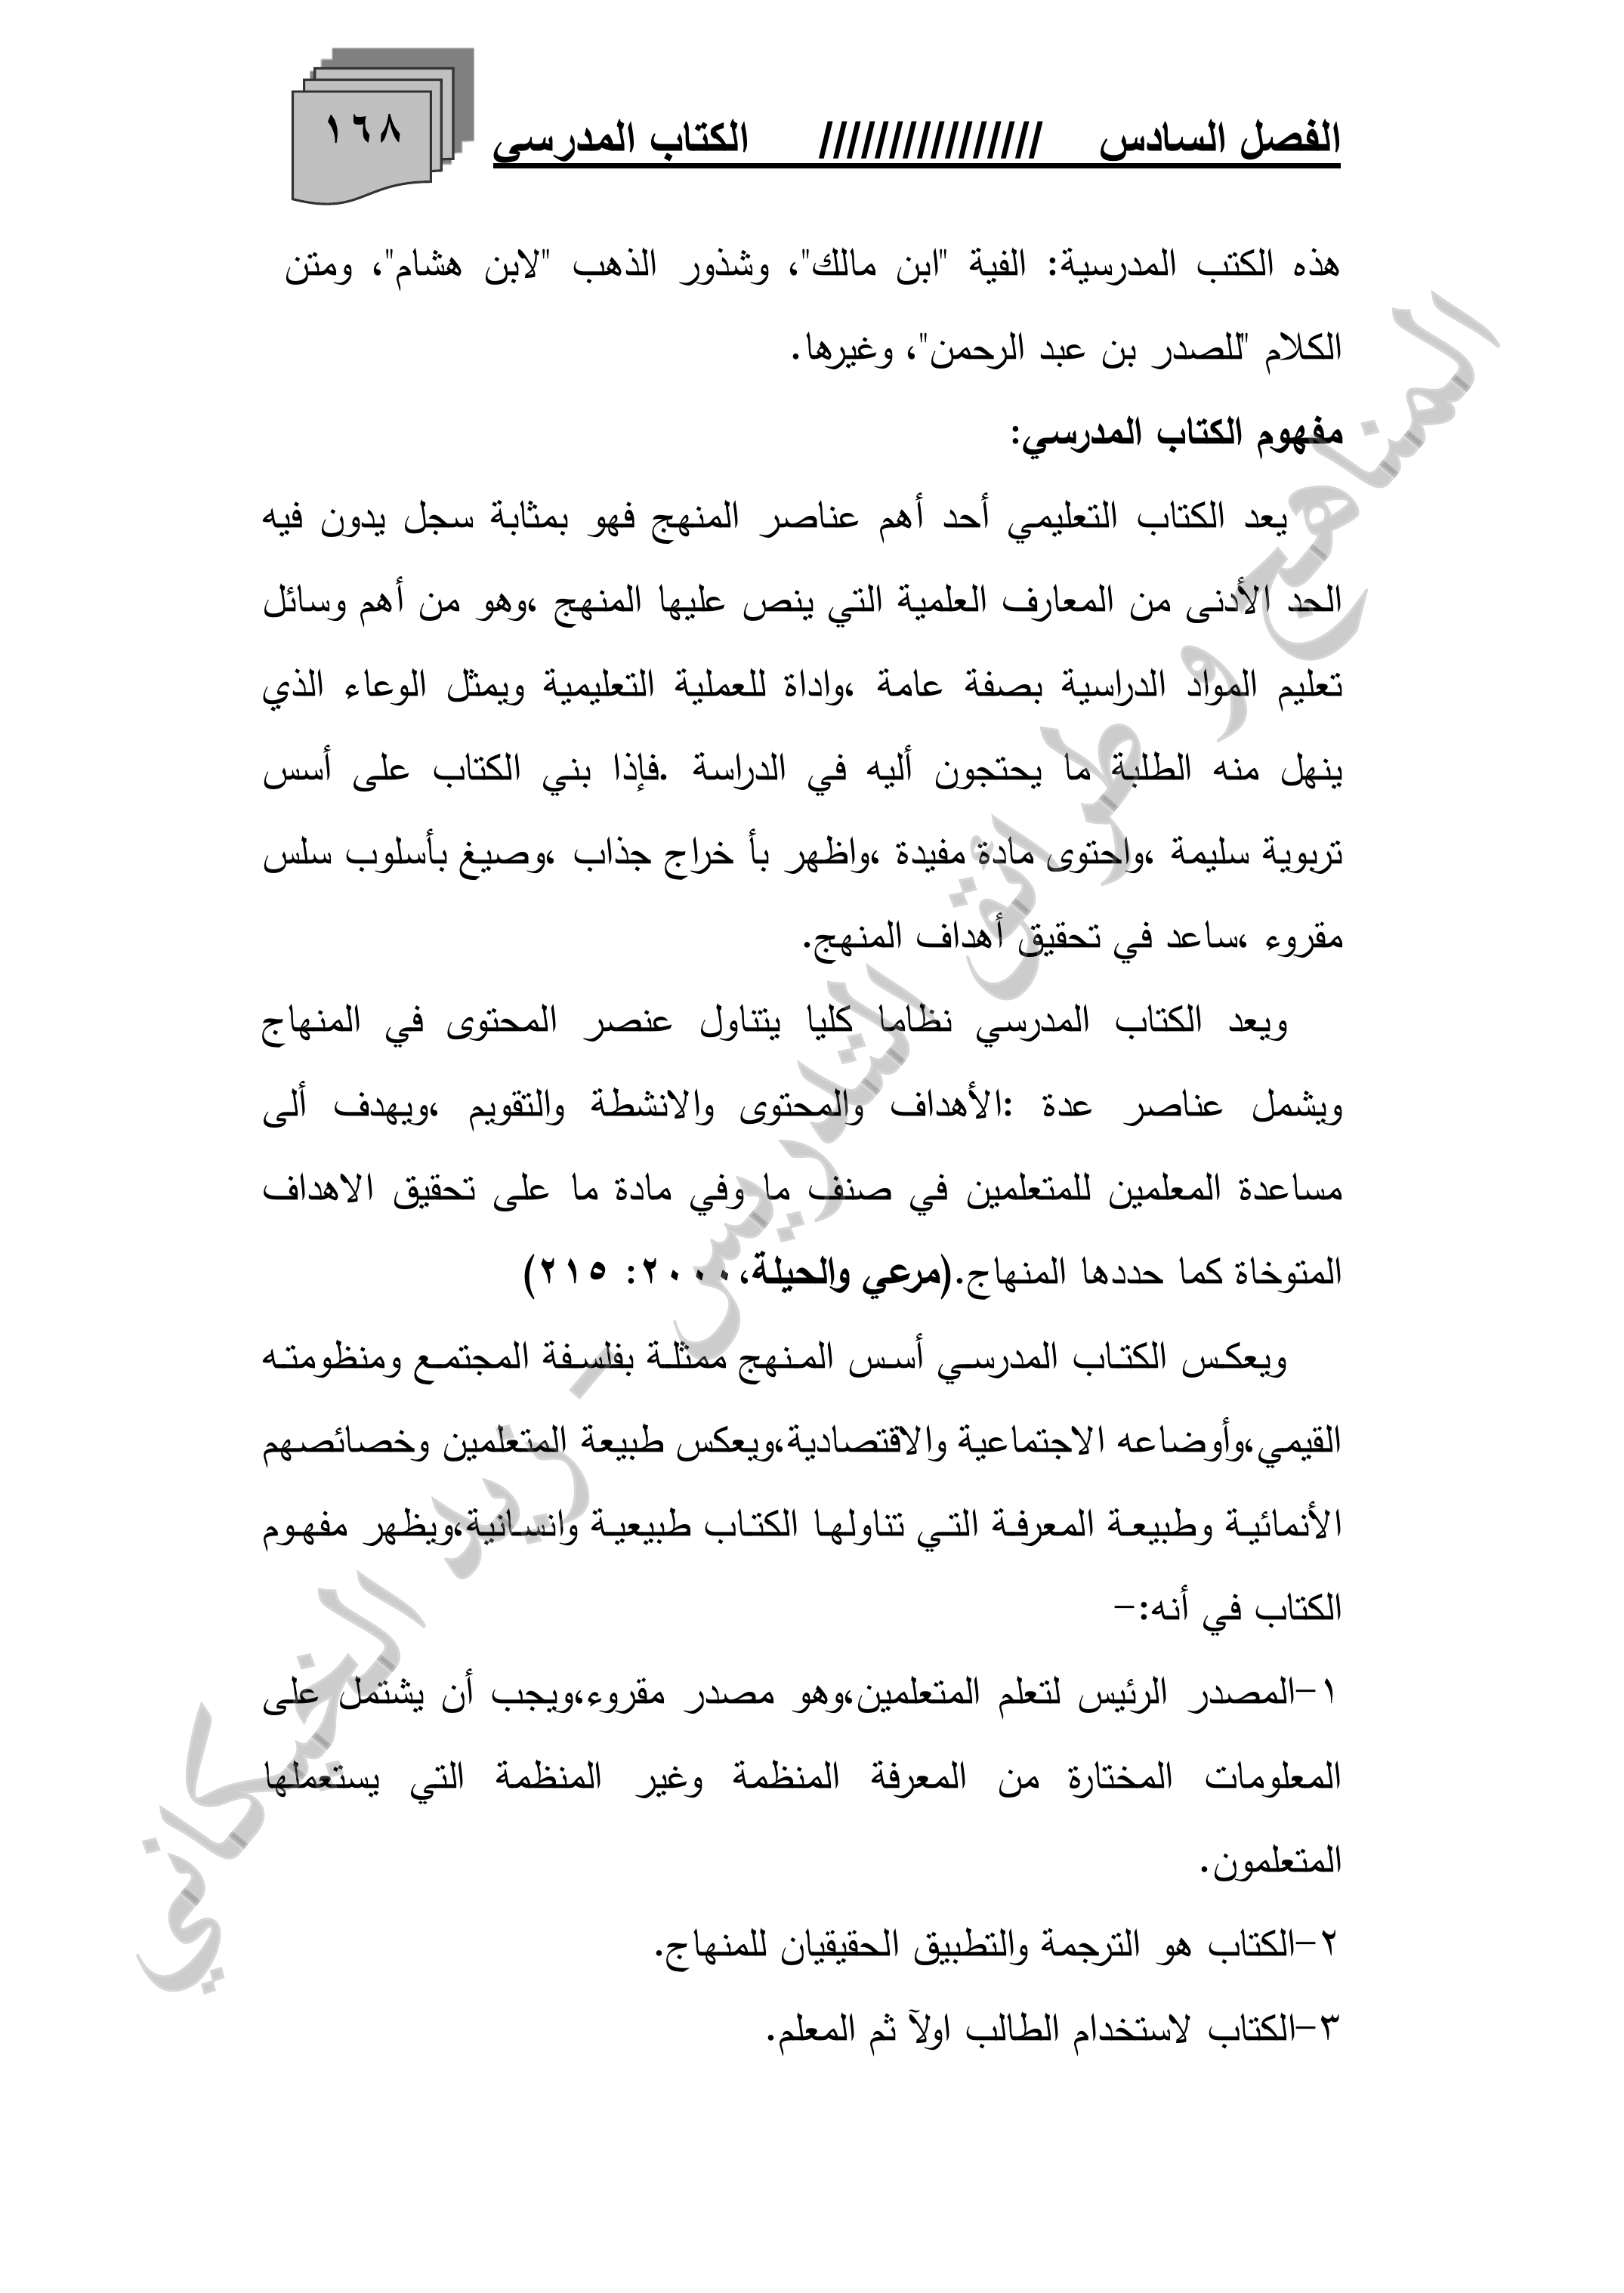 الفصل السادس //////////////// الكتاب المدرسي
١٦٨
هذه الكتب المدرسية: الفية "ابن مالك"، وشذور الذهب "لابن هشام"، ومتن
الكلام "للصدر بن عبد الرحمن"، وغيرها.
مفهوم الكتاب المدرسي:
يعد الكتاب التعليمي أحد أهم عناصر المنهج فهو بمثابة سجل يدون فيه
الحد الأدنى من المعارف العلمية التي ينص عليها المنهج ،وهو من أهم وسائل
تعليم المواد الدراسية بصفة عامة ،واداة للعملية التعليمية ويمثل الوعاء الذي
ينهل منه الطلبة ما يحتجون أليه في الدراسة .فإذا بني الكتاب على أسس
تربوية سليمة ،واحتوى مادة مفيدة ،واظهر بأ خراج جذاب ،وصيغ بأسلوب سلس
مقروء ،ساعد في تحقيق أهداف المنهج.
ويعد الكتاب المدرسي نظاما كليا يتناول عنصر المحتوى في المنهاج
ويشمل عناصر عدة :الأهداف والمحتوى والانشطة والتقويم ،ويهدف ألى
مساعدة المعلمين للمتعلمين في صنف ما وفي مادة ما على تحقيق الاهداف
المتوخاة كما حددها المنهاج.(مرعي والحيلة،٢٠٠٠: ٢١٥)
ويعكس الكتاب المدرسي أسس المنهج ممثلة بفلسفة المجتمع ومنظومته
القيمي،وأوضاعه الاجتماعية والاقتصادية،ويعكس طبيعة المتعلمين وخصائصهم
الأنمائية وطبيعة المعرفة التي تناولها الكتاب طبيعية وانسانية،ويظهر مفهوم
الكتاب في أنه:-
١-المصدر الرئيس لتعلم المتعلمين،وهو مصدر مقروء،ويجب أن يشتمل على
المعلومات المختارة من المعرفة المنظمة وغير المنظمة التي يستعملها
المتعلمون.
٢-الكتاب هو الترجمة والتطبيق الحقيقيان للمنهاج.
٣-الكتاب لاستخدام الطالب اولآ ثم المعلم.
المناهج و طرائق التدريس - زيد الخيكاني